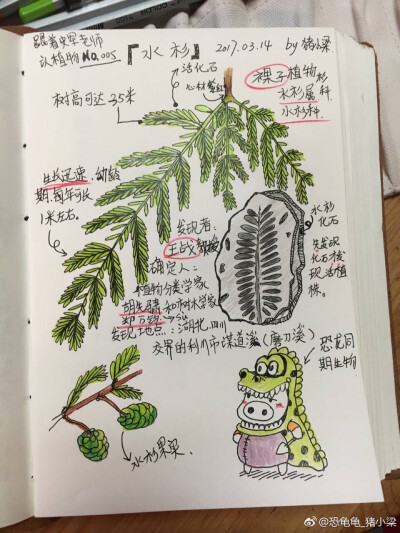 跟着史军老师
认植物NO.005
『水杉』
2017.03.14
by 猪小梁
活化石
心材紫红
裸子植物
杉科
水杉属
水杉种.
树高可达35米
生长迅速.幼龄
期,每年可长
1米左右.
水杉
化石
先发现
化石后发
现活植
株.
发现者:
王战教授
确定人:
植物分类学家
胡先骕和树木学家
郑万钧
su
发现地点:湖北.四川
交界的利川市谋道溪(磨刀溪)
恐龙同
期生物
水杉果实.
@恐龟龟_猪小梁